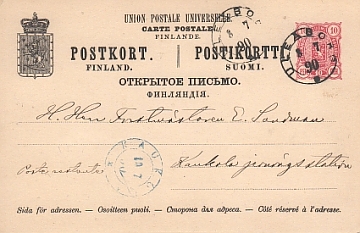 UNION POSTALE UNIVERSELLE.
CARTE POSTALE
FINLANDE.
POSTKORT. POSTIKORTTI
FINLAND. SUOMI.
ОТКРЫТОЕ ПИСЬМО.
ФИНЛЯНДІЯ.
ULEÅBORG
7
90
10
H. Herr Forstmästaren E. Sandman
Poste restante
Kaukola jernvägsstation
Sida för adressen. — Osoitteen puoli. — Сторона для адреса. — Côté réservé à l'adresse.